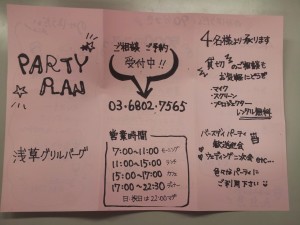 PARTY
PLAN
浅草グリルバーグ
ご相談 ご予約
受付中!!
03-6802-7565
営業時間
7:00〜11:00 モーニング
11:00〜15:00 ランチ
15:00〜17:00 カフェ
17:00〜22:30 ディナー
日・祝日は22:00マデ
4名様より承ります
貸切のご相談も
お気軽にどうぞ
・マイク
・スクリーン
・プロジェクター
レンタル無料
バースデイパーティ
歓送迎会
ウェディング二次会 etc...
色々なパーティに
ご利用下さい